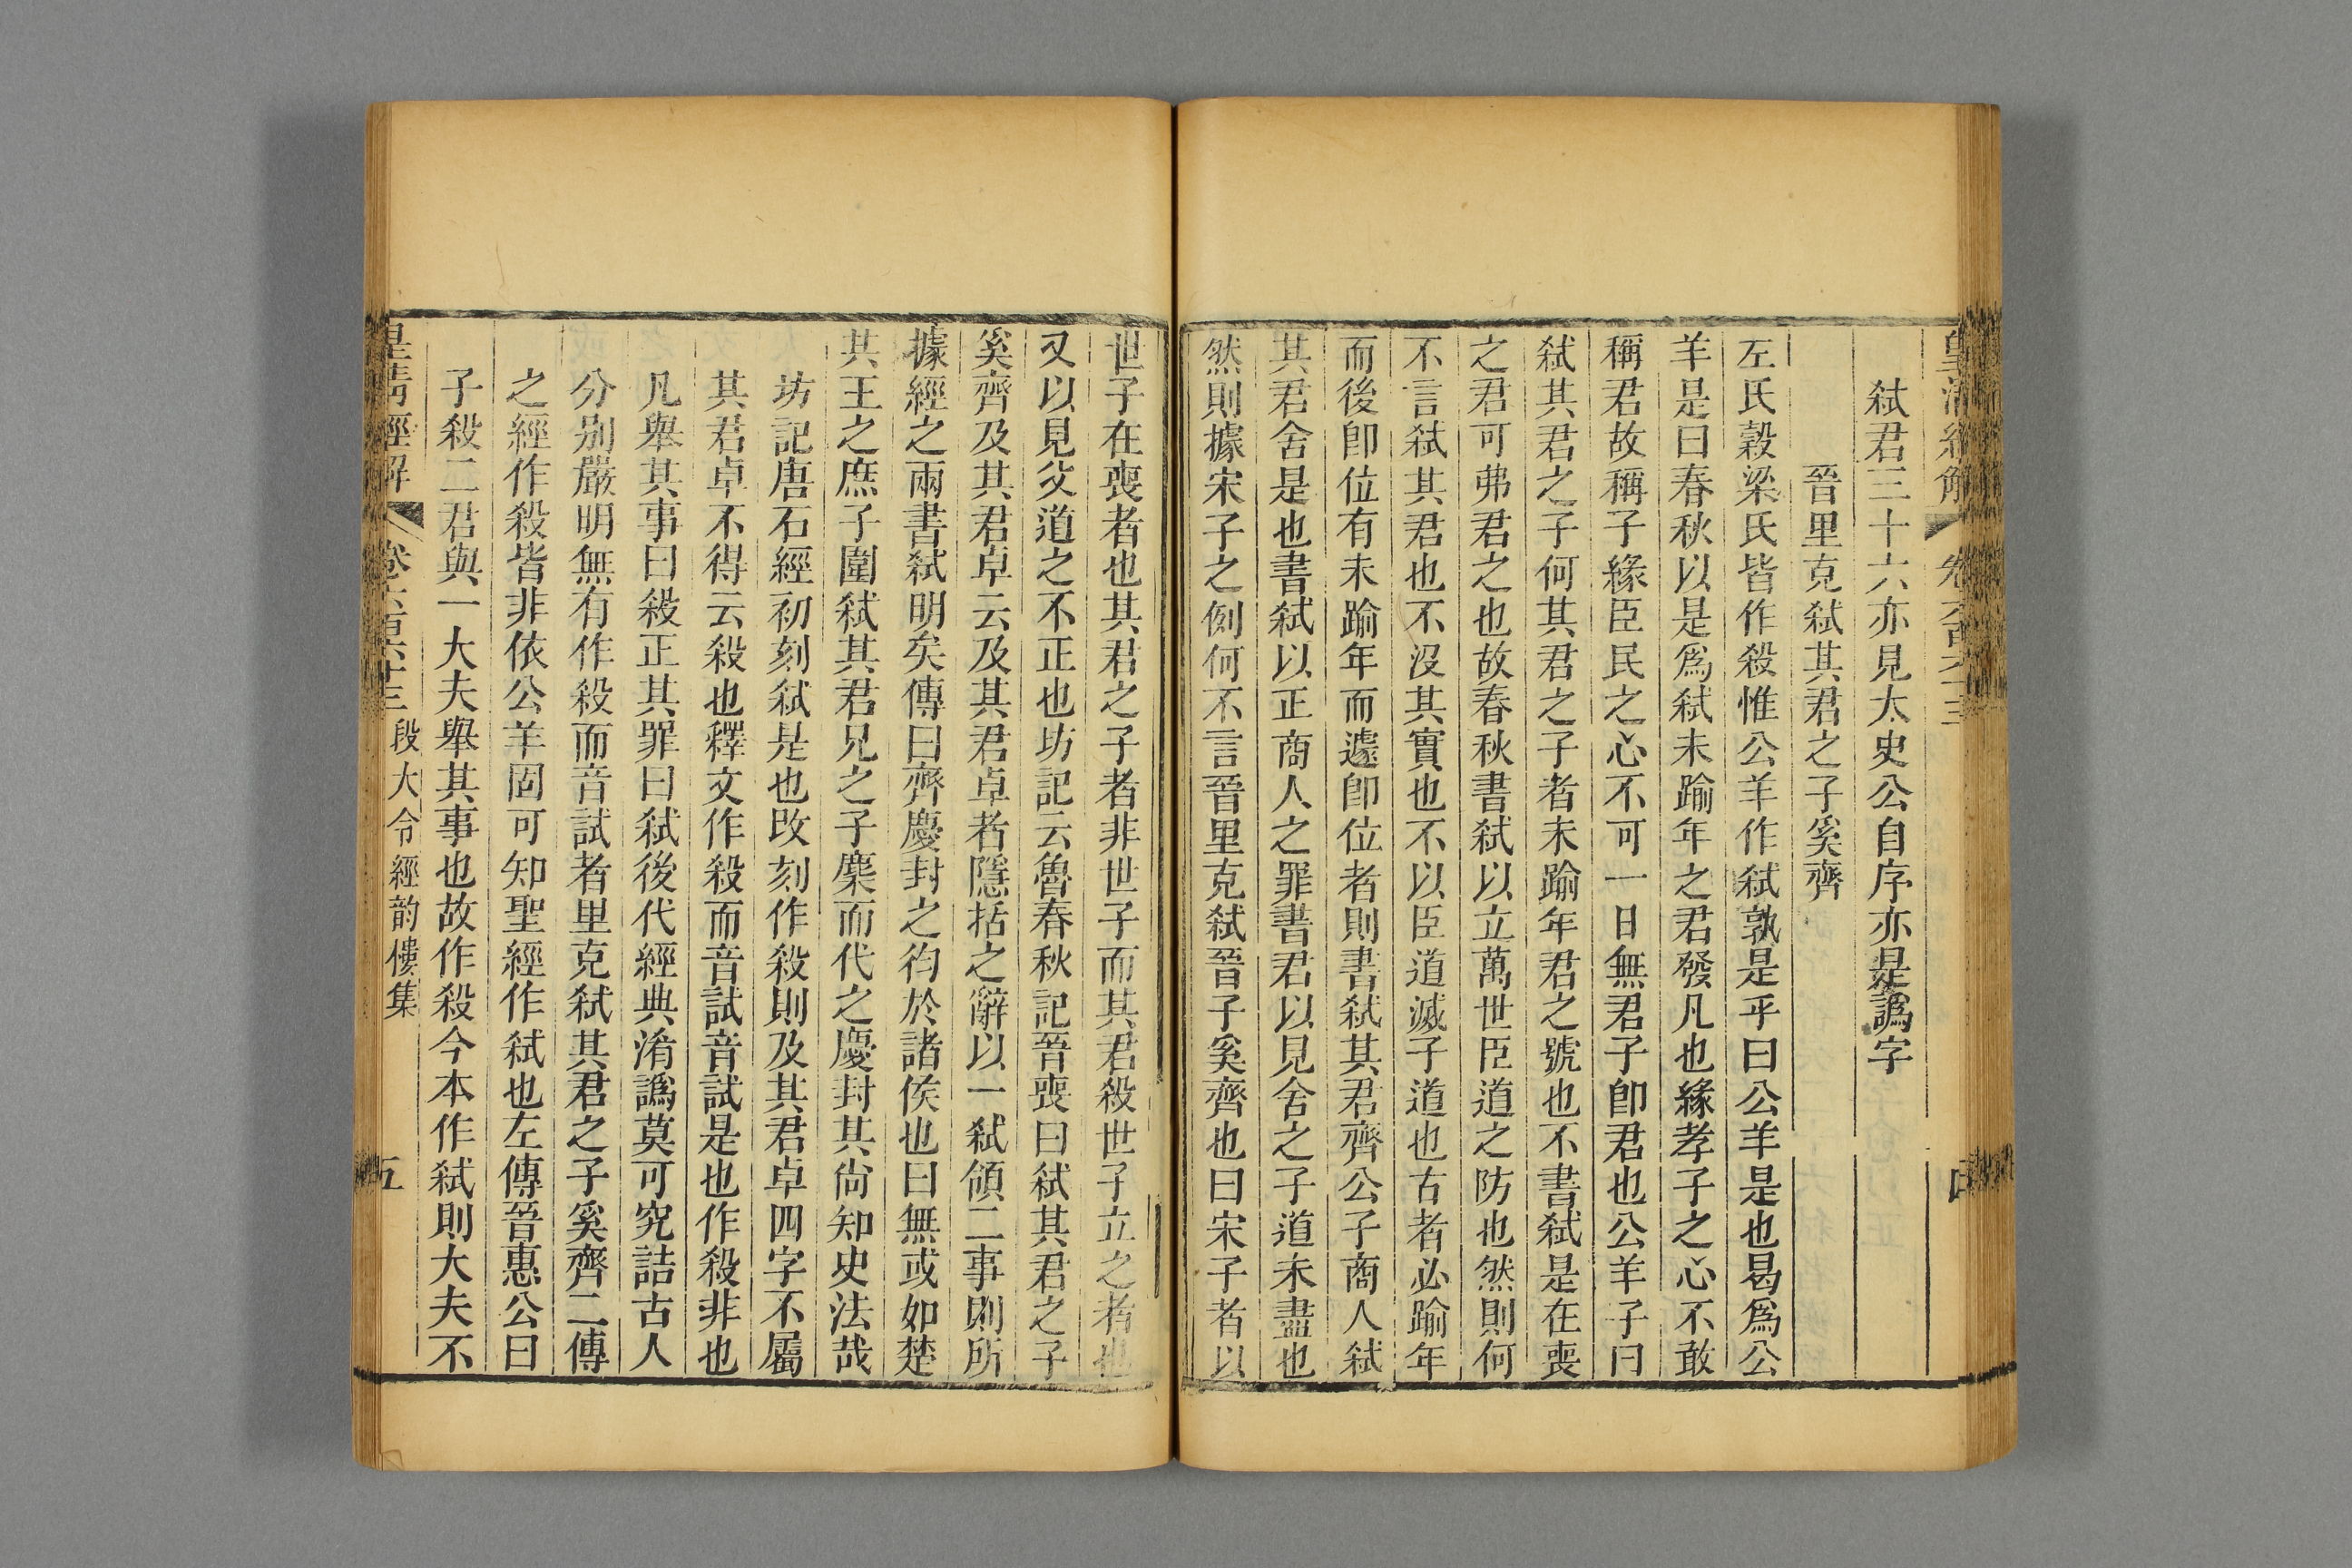 弑君三十六亦見太史公自序亦是譌字
晉里克弑其君之子奚齊
左氏穀梁氏皆作殺惟公羊作弑孰是乎曰公羊是也曷爲公
羊是曰春秋以是爲弑未踰年之君發凡也緣孝子之心不敢
稱君故稱子緣臣民之心不可一日無君子卽君也公羊子曰
弑其君之子何其君之子者未踰年君之號也不書弑是在喪
之君可弗君之也故春秋書弑以立萬世臣道之防也然則何
不言弑其君也不沒其實也不以臣道滅子道也古者必踰年
而後卽位有未踰年而遽卽位者則書弑其君齊公子商人弑
其君舍是也書弑以正商人之罪書君以見舍之子道未盡也
然則據宋子之例何不言晉里克弑晉子奚齊也曰宋子者以
世子在喪者也其君之子者非世子而其君殺世子立之者也
又以見父道之不正也坊記云魯春秋記晉喪曰弑其君之子
奚齊及其君卓云及其君卓者隱括之辭以一弑領二事則所
據經之兩書弑明矣傳曰齊慶封之徇於諸侯也曰無或如楚
其王之庶子圍弑其君兄之子麇而代之慶封其尙知史法哉
坊記唐石經初刻弑是也改刻作殺則及其君卓四字不屬
其君卓不得云殺也釋文作殺而音試音試是也作殺非也
凡舉其事曰殺正其罪曰弑後代經典淆譌莫可究詰古人
分別嚴明無有作殺而音試者里克弑其君之子奚齊二傳
之經作殺皆非依公羊固可知聖經作弑也左傳晉惠公曰
子殺二君與一大夫舉其事也故作殺今本作弑則大夫不
皇清經解 卷六百六十三 段大令經韵樓集 五